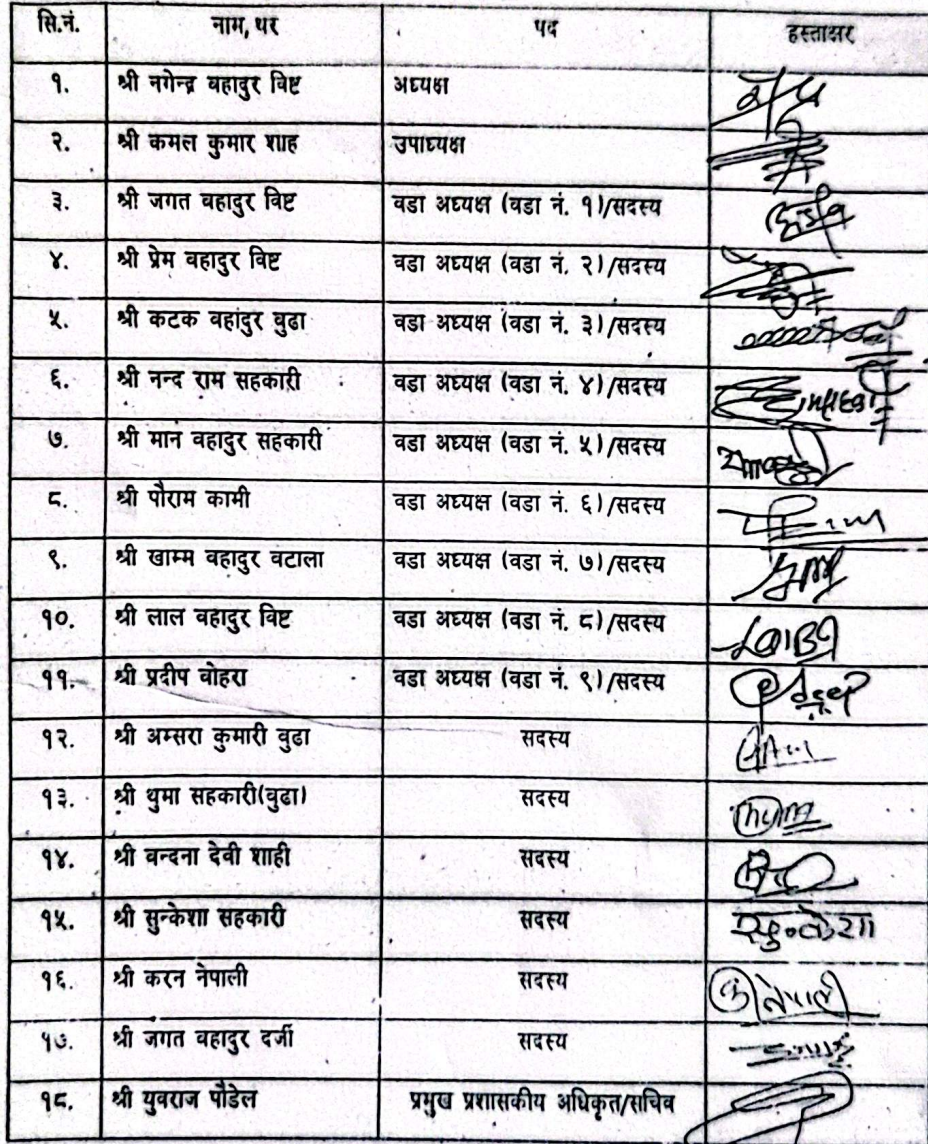 सि.नं. नाम, थर पद हस्ताक्षर
१. श्री नगेन्द्र वहादुर विष्ट अध्यक्ष
२. श्री कमल कुमार शाह उपाध्यक्ष
३. श्री जगत वहादुर विष्ट वडा अध्यक्ष (वडा नं. १)/सदस्य
४. श्री प्रेम वहादुर विष्ट वडा अध्यक्ष (वडा नं. २)/सदस्य
५. श्री कटक वहादुर वुढा वडा अध्यक्ष (वडा नं. ३)/सदस्य
६. श्री नन्द राम सहकारी वडा अध्यक्ष (वडा नं. ४)/सदस्य
७. श्री मान वहादुर सहकारी वडा अध्यक्ष (वडा नं. ५)/सदस्य
८. श्री पौराम कामी वडा अध्यक्ष (वडा नं. ६)/सदस्य
९. श्री खाम्म वहादुर वटाला वडा अध्यक्ष (वडा नं. ७)/सदस्य
१०. श्री लाल वहादुर विष्ट वडा अध्यक्ष (वडा नं. ८)/सदस्य
११. श्री प्रदीप वोहरा वडा अध्यक्ष (वडा नं. ९)/सदस्य
१२. श्री अम्सरा कुमारी वुढा सदस्य
१३. श्री थुमा सहकारी(वुढा) सदस्य
१४. श्री वन्दना देवी शाही सदस्य
१५. श्री सुन्केशा सहकारी सदस्य सुन्केशा
१६. श्री करन नेपाली सदस्य नेपाली
१७. श्री जगत वहादुर दर्जी सदस्य
१८. श्री युवराज पौडेल प्रमुख प्रशासकीय अधिकृत/सचिव